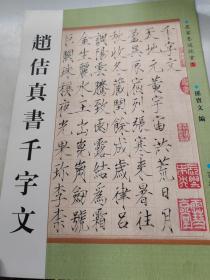 孫寶文 編
趙佶真書千字文
千字文
天地元黃宇宙洪荒日
月盈昃辰宿列張寒來暑往
秋收冬藏閏餘成歲律呂
調陽雲騰致雨露結為霜
金生麗水玉出崑岡劍號
巨闕珠稱夜光果珍李柰